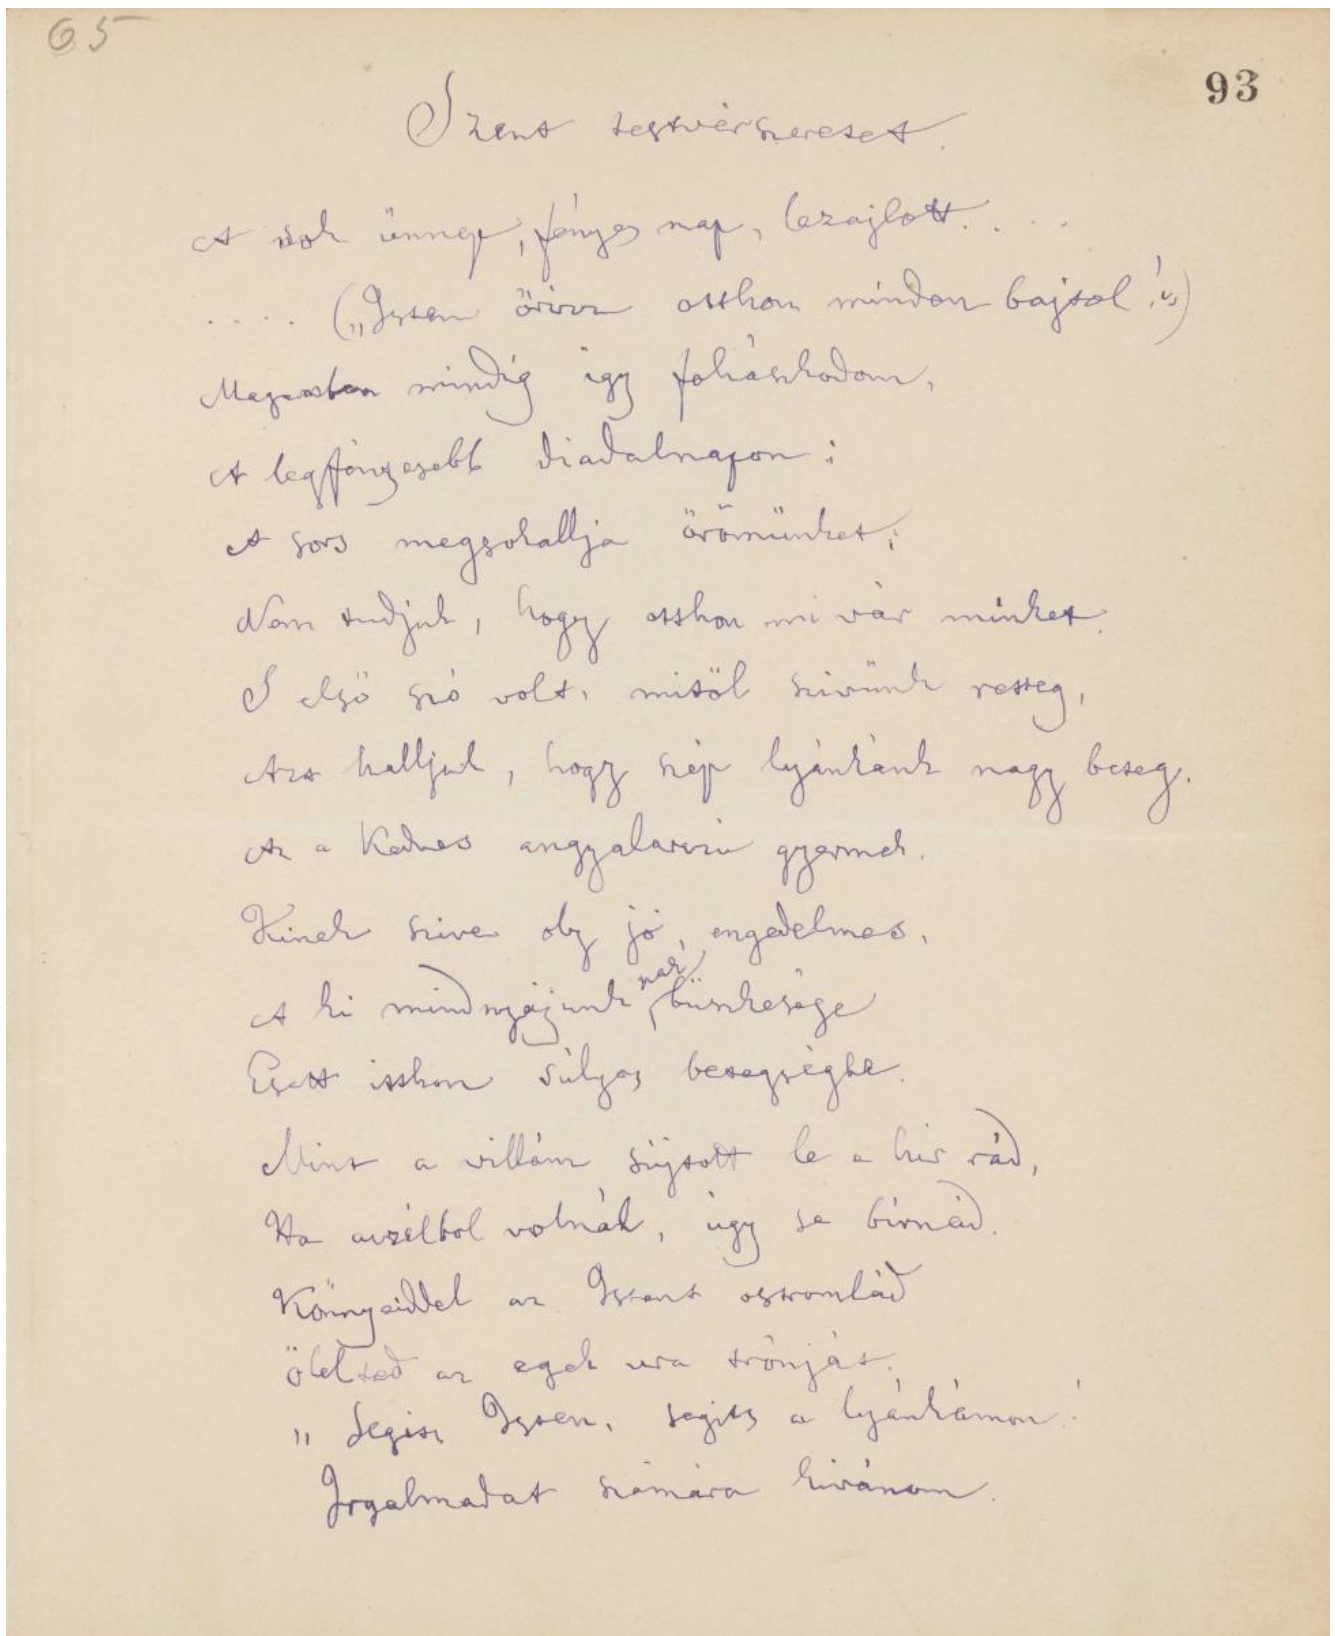 65
93
Szent testvérszeretet.
A sok ünnep, fényes nap, lezajlott. . . .
. . . . („Isten őrizz otthon minden bajtol!")
Magamban mindig így foháskodom,
A legfényesebb diadalnapon:
A sors megsokallja örömünket;
Nem tudjuk, hogy otthon mi vár minket.
S első szó volt, mitől szivünk resteg,
Azt halljuk, hogy szép lyánkánk nagy beteg.
Az a Kedves angyalarczu gyermek.
Kinek szive oly jó, engedelmes,
A ki mindnyájunknak büszkesége
Esett itthon súlyos betegségbe.
Mint a villám sújtott le a hír rád,
Ha aczélbol volnál, úgy se bírnád.
Könnyeiddel az Istent ostromlád
Öleltad az egek ura trónját.
„Segits Isten, segits a lyánkámon!
Irgalmadat számára kivánom.